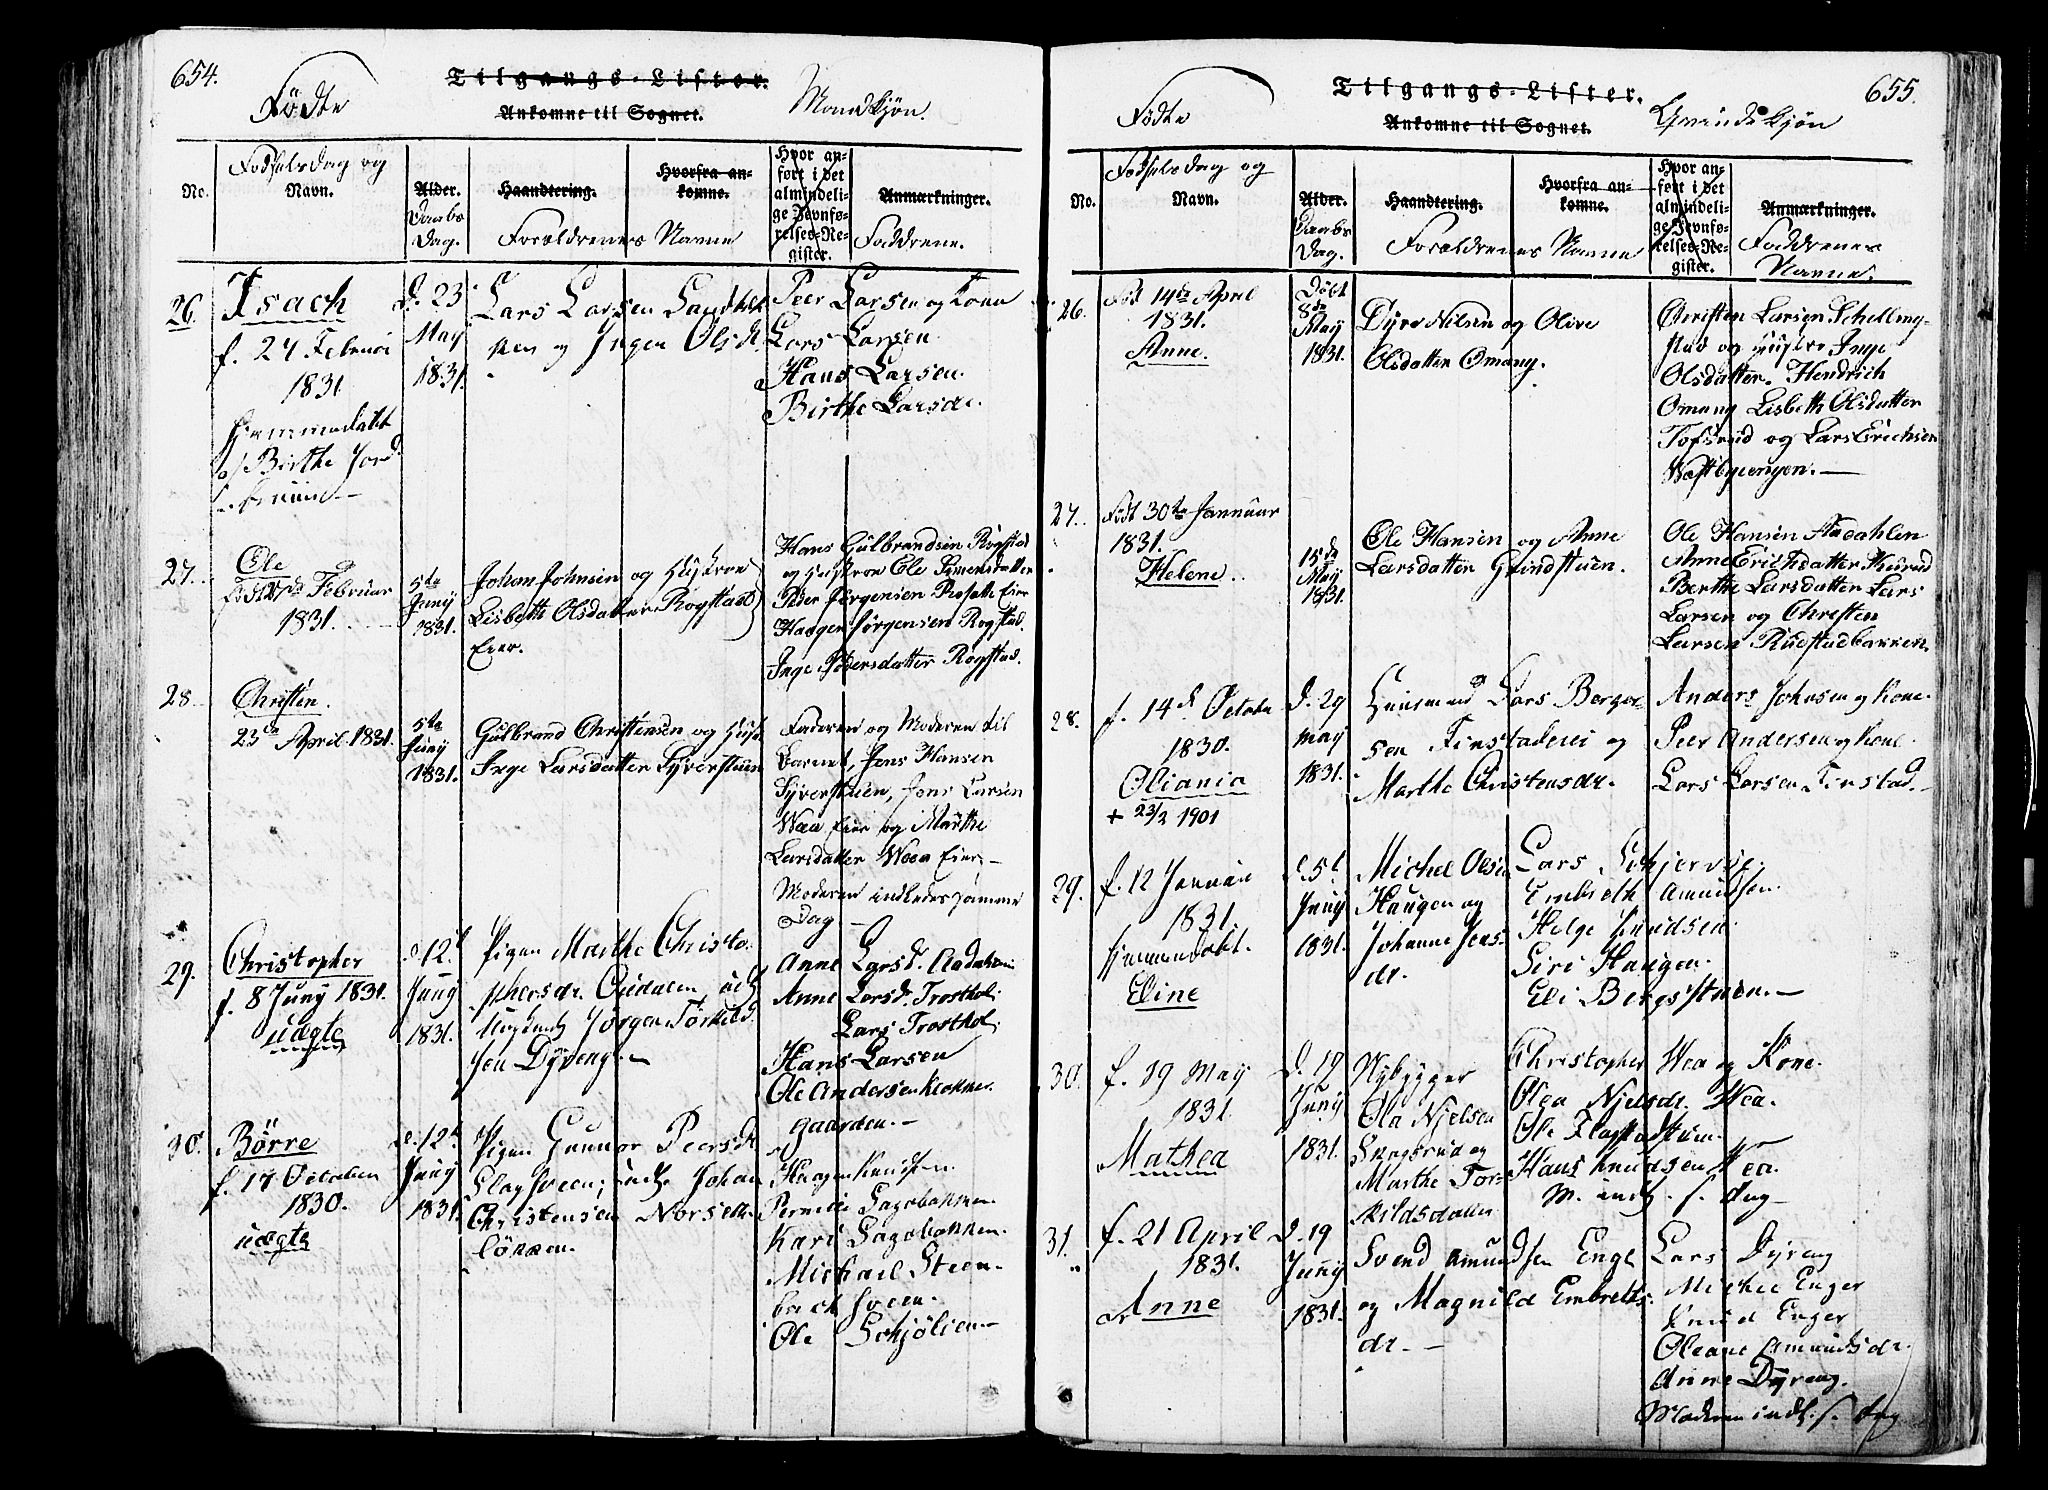 654.
Tilgangs-Lister.
Fødte
Ankomne til Sognet.
Mandkjøn.
No.
Fødselsdag og
Navn.
Alder.
Daabs
Dag.
Haandtering.
Hvorfra an-
komne.
Forældrenes Navne
Hvor an-
ført i det
almindeli-
ge Jevnfø-
relses-Re-
gister.
Anmærkninger.
Faddrene.
26.
Isach
f. 24 Februari
1831
hjemmedøbt
af Birthe
D. 23
May
1831.
Lars Larsen
og Inger Olsd.
Peer Larsen og Kone
Lars Larsen
Hans Larsen
Birthe Larsdr.
27.
Ole
Februar
1831.
5te
Juny
1831.
Johan Johnsen og Hustroe
Lisbeth Olsdatter Rogstad
Eier.
Hans Gulbrandsen Rogstad
og Hustroe Ole Simensdatter
Peder Jørgensen Eier
Haagen Jørgensen Rogstad.
Inge Pedersdatter Rogstad.
28.
Christen.
23de April 1831.
5te
Juny
1831.
Gulbrand Christensen og Hust.
Inge Larsdatter Syverstuen
Faderen og Moderen til
Barnet, Jens Hansen
Syverstuen, Jens Larsen
Wæa Eier og Marthe
Larsdatter Woea Eier,
Moderen indledes samme
Dag
29.
Christopher
f. 8 Juny 1831.
uægte
d. 12t
Juny
1831.
Pigen Marthe Christo-
phersdr.
Jørgen Torkild-
sen Dyreng.
Anne Larsd. Aadalen
Anne Larsd. Trosthol.
Lars Trosthol.
Hans Larsen
Ole Andersen Klokker-
gaarden.
30.
Børre
f. 17 October
1830.
uægte
d. 12t
Juny
1831.
Pigen Gunnor Peersd.
Johan
Christensen Norset-
løkken.
Haagen Knudsen.
Pernille Sagabakken.
Kari Sagabakken.
Michael Steen-
Ole Schjølien
655.
Tilgangs-Lister.
Fødte
Ankomne til Sognet.
Qvindekjøn
No.
Fødselsdag og
Navn.
Alder.
Daabs
Dag.
Haandtering.
Hvorfra an-
komne.
Forældrenes Navne
Hvor an-
ført i det
almindeli-
ge Jevnfø-
relses-Re-
gister.
Anmærkninger.
Faddrenes
Navne.
26.
Fød 14de April
1831.
Anne.
Døbt
8de
May
1831.
Dyre Nilsen og Olive
Olsdatter Omang.
Christen Larsen Schelling-
stad og Hustro Inge
Olsdatter. Hendrich
Omang Lisbeth Olsdatter
Tofsrud og Lars Erichsen
Wæstbyeengen.
27.
Født 30te Januar
1831.
Helene.
15de
May
1831.
Ole Hansen og Anne
Larsdatter Grindstuen.
Ole Hansen Aadahlen
Anne Erichsdatter
Berthe Larsdatter Lars
Larsen og Christen
Larsen Rustadbakken.
28.
f. 14d. Octobr
1830.
Oliania
+ 23/2 1901
D. 29
May
1831.
Huusmand Lars Berger-
sen Finstadeie og
Marthe Christensdr.
Anders Johnsen og Kone.
Peer Andersen og Kone
Lars Larsen Finstad.
29.
f. 12 Januari
1831.
hjemmedøbt.
Eline
d. 5t
Juny
1831.
Michel Olsen
Haugen og
Johanne Jens-
dr.
Lars Schjervig.
Embreth Amundsen.
Helge Knudsen
Siri Haugen.
Eli Bergsstuen.
30.
f. 19 May
1831.
Mathea
D. 19
Juny
1831.
Nybygger
Ola Njelsen
Skagsrud og
Marthe Tor-
kildsdatter
Christopher Wea og Kone.
Olea Njelsdr. Wea.
Ole Flagstadstuen
Hans Knudsen Wea.
M. indl. s. Dag
31.
f. 21 April
1831.
Anne
D. 19
Juny
1831.
Svend Amundsen Enge
og Magnild Embretts-
dr.
Lars Dyreng
Michel Enger
Knud Enger
Oleane Amundsdr.
Anne Dyreng.
Moderen indl. s. Dag